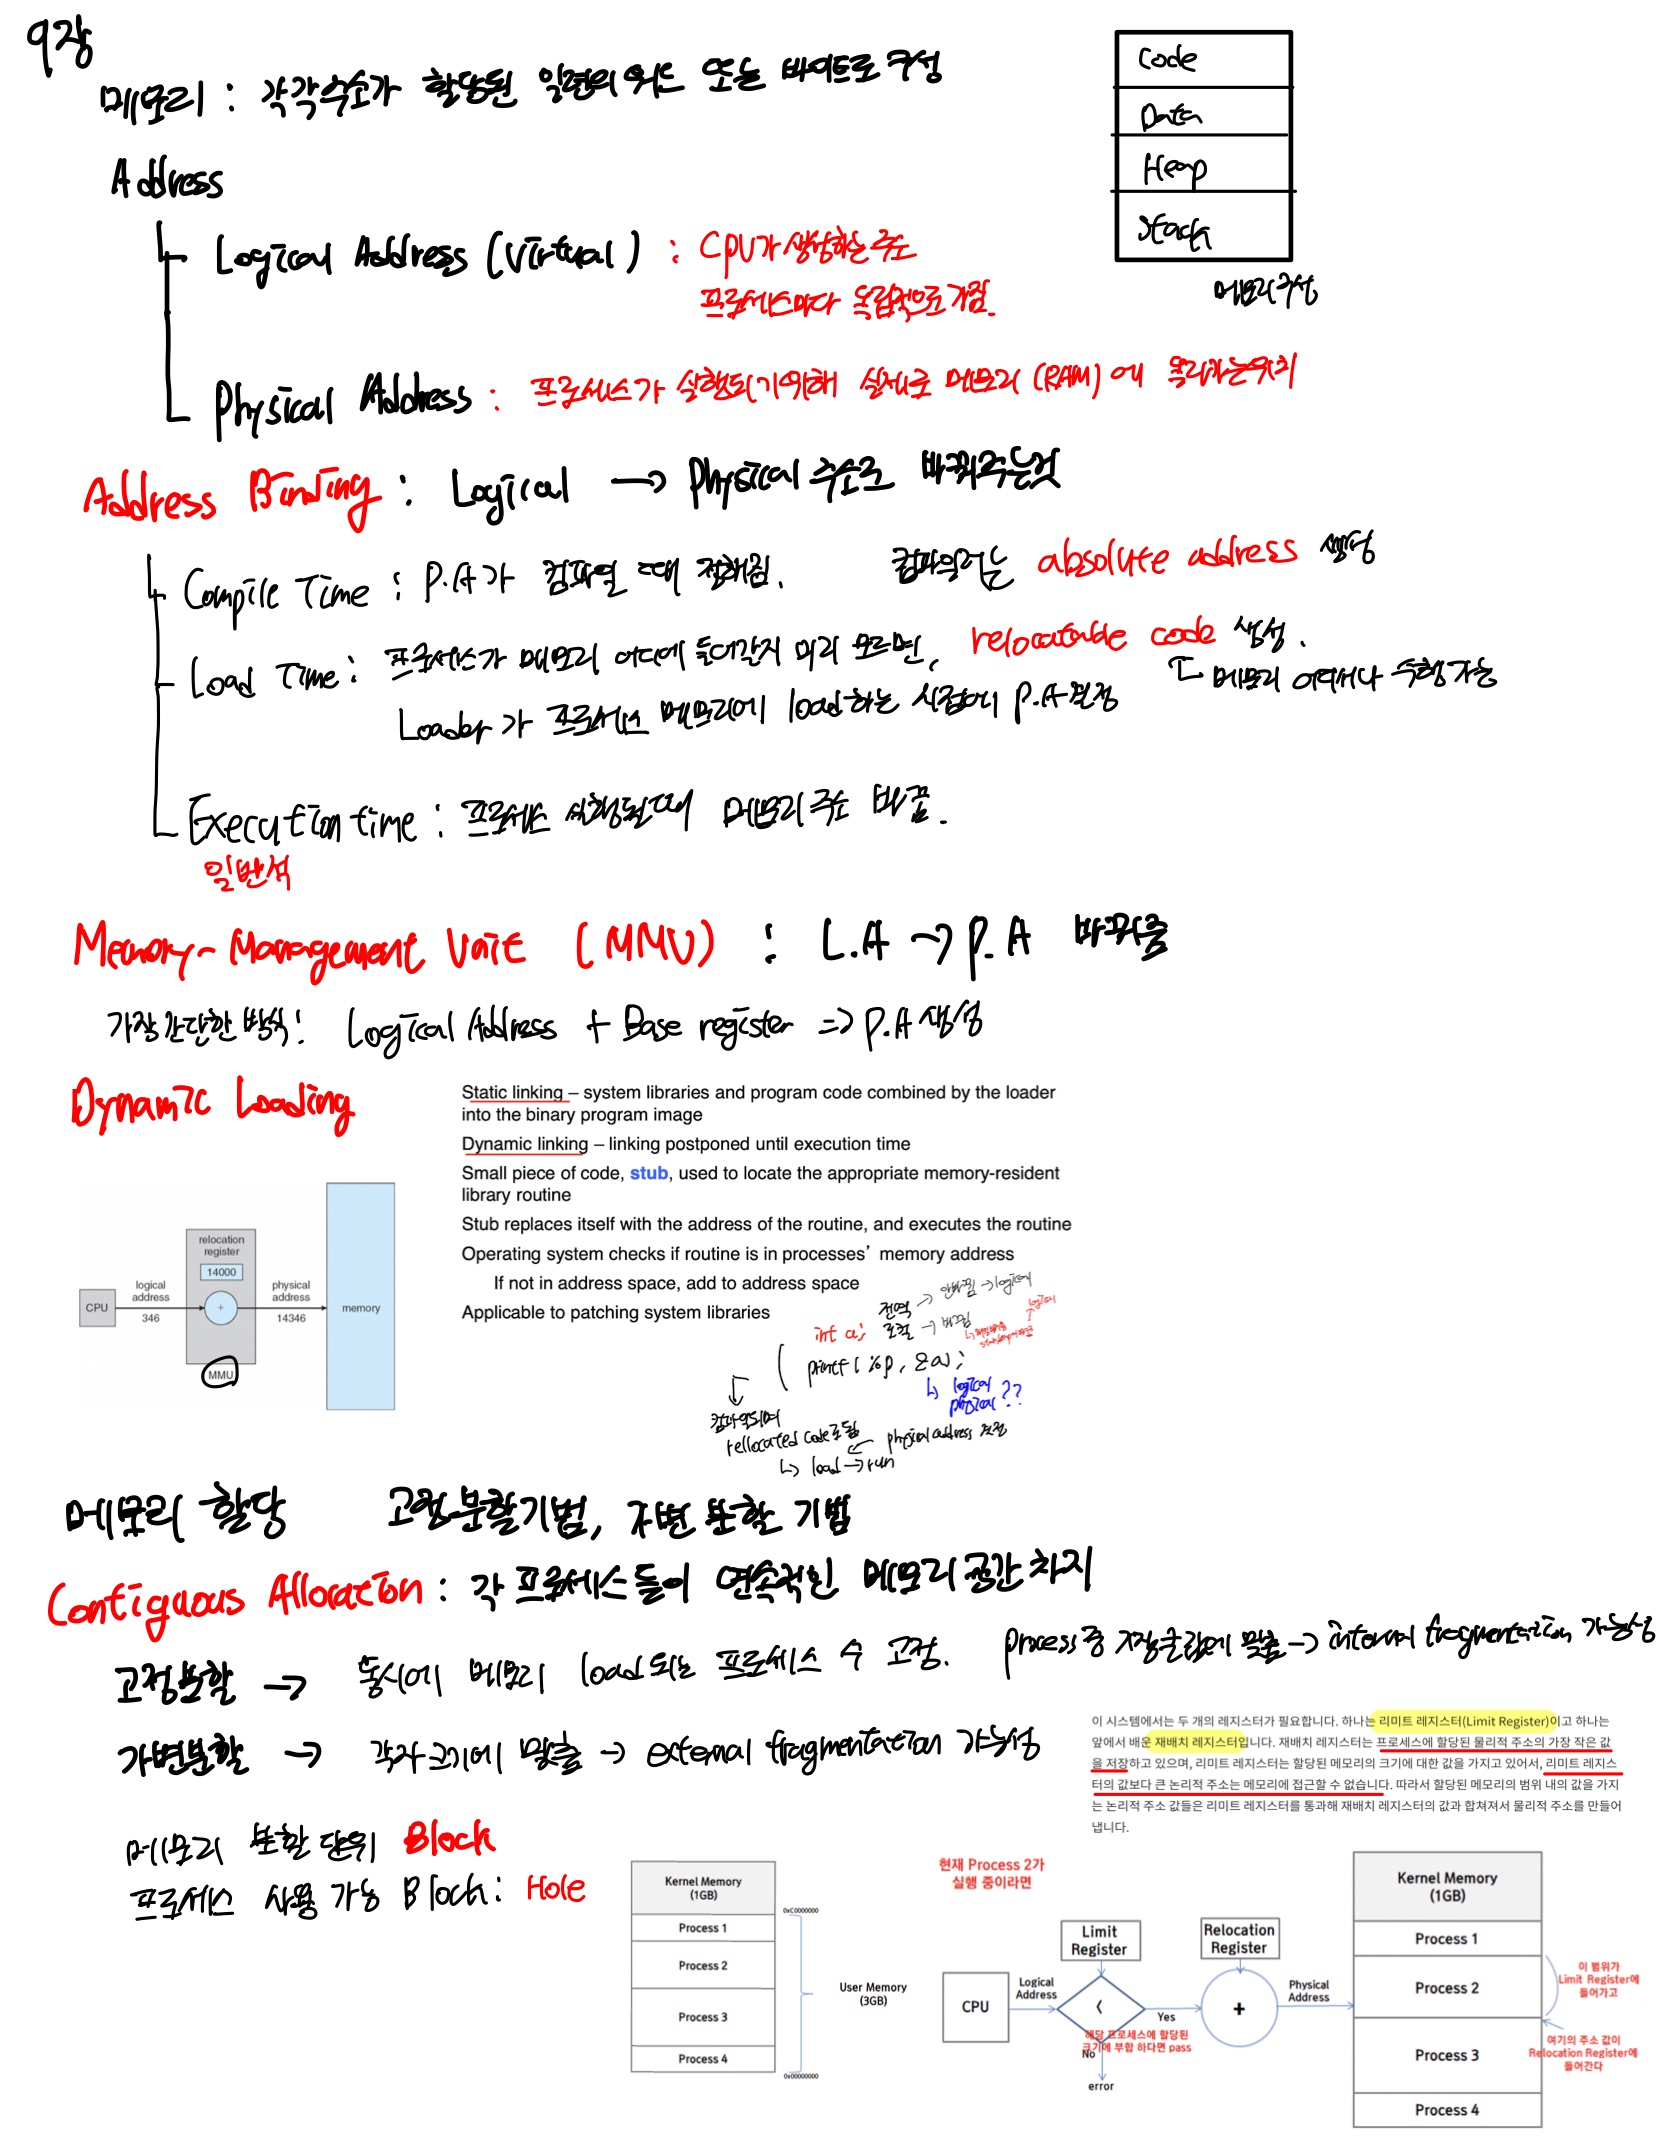 9장
메모리 : 각각 주소가 할당된 일련의 워드 또는 바이트로 구성
Code
Data
Heap
Stack
메모리 구성
Address
Logical Address (Virtual) : CPU가 생성하는 주소
프로세스마다 독립적으로 가짐.
Physical Address : 프로세스가 실행되기 위해 실제로 메모리 (RAM) 에 올라가는 위치
Address Binding : Logical → Physical 주소로 바꿔주는것
Compile Time : P.A가 컴파일 때 정해짐. 컴파일러는 absolute address 생성
Load Time : 프로세스가 메모리 어디에 들어갈지 미리 모르면, relocatable code 생성.
메모리 어디서나 수행가능
Loader가 프로세스 메모리에 load하는 시점에 P.A 결정
Execution time : 프로세스 실행될때 메모리 주소 바뀜.
일반적
Memory-Management Unit (MMU) : L.A → P.A 바꿔줌
가장 간단한 방식! Logical Address + Base register => P.A 생성
Dynamic Loading
Static linking – system libraries and program code combined by the loader
into the binary program image
Dynamic linking – linking postponed until execution time
Small piece of code, stub, used to locate the appropriate memory-resident
library routine
Stub replaces itself with the address of the routine, and executes the routine
Operating system checks if routine is in processes' memory address
If not in address space, add to address space
Applicable to patching system libraries
relocation
register
14000
logical
address
346
CPU
+
physical
address
14346
memory
MMU
전역 → 안바뀜 → logical
int a; 로컬 → 바뀜
logical
printf ( %p, &a);
logical
physical ??
컴파일되며
rellocated code로 됨 ← physical address 결정
load → run
메모리 할당 고정분할기법, 가변 분할 기법
Contiguous Allocation : 각 프로세스들이 연속적인 메모리 공간 차지
고정분할 → 동시에 메모리 load 되는 프로세스 수 고정. process 중 가장큰값에 맞춤 → internal fragmentation 가능성
가변분할 → 각자 크기에 맞춤 → external fragmentation 가능성
이 시스템에서는 두 개의 레지스터가 필요합니다. 하나는 리미트 레지스터(Limit Register)이고 하나는
앞에서 배운 재배치 레지스터입니다. 재배치 레지스터는 프로세스에 할당된 물리적 주소의 가장 작은 값
을 저장하고 있으며, 리미트 레지스터는 할당된 메모리의 크기에 대한 값을 가지고 있어서, 리미트 레지스
터의 값보다 큰 논리적 주소는 메모리에 접근할 수 없습니다. 따라서 할당된 메모리의 범위 내의 값을 가지
는 논리적 주소 값들은 리미트 레지스터를 통과해 재배치 레지스터의 값과 합쳐져서 물리적 주소를 만들어
냅니다.
메모리 분할 단위 Block
프로세스 사용 가능 Block : Hole
Kernel Memory
(1GB)
Process 1
Process 2
Process 3
Process 4
0xC0000000
User Memory
(3GB)
0x00000000
현재 Process 2가
실행 중이라면
Limit
Register
Relocation
Register
CPU
Logical
Address
<
Yes
해당 프로세스에 할당된
크기에 부합 하다면 pass
No
error
+
Physical
Address
Kernel Memory
(1GB)
Process 1
Process 2
Process 3
Process 4
이 범위가
Limit Register에
들어가고
여기의 주소 값이
Relocation Register에
들어간다